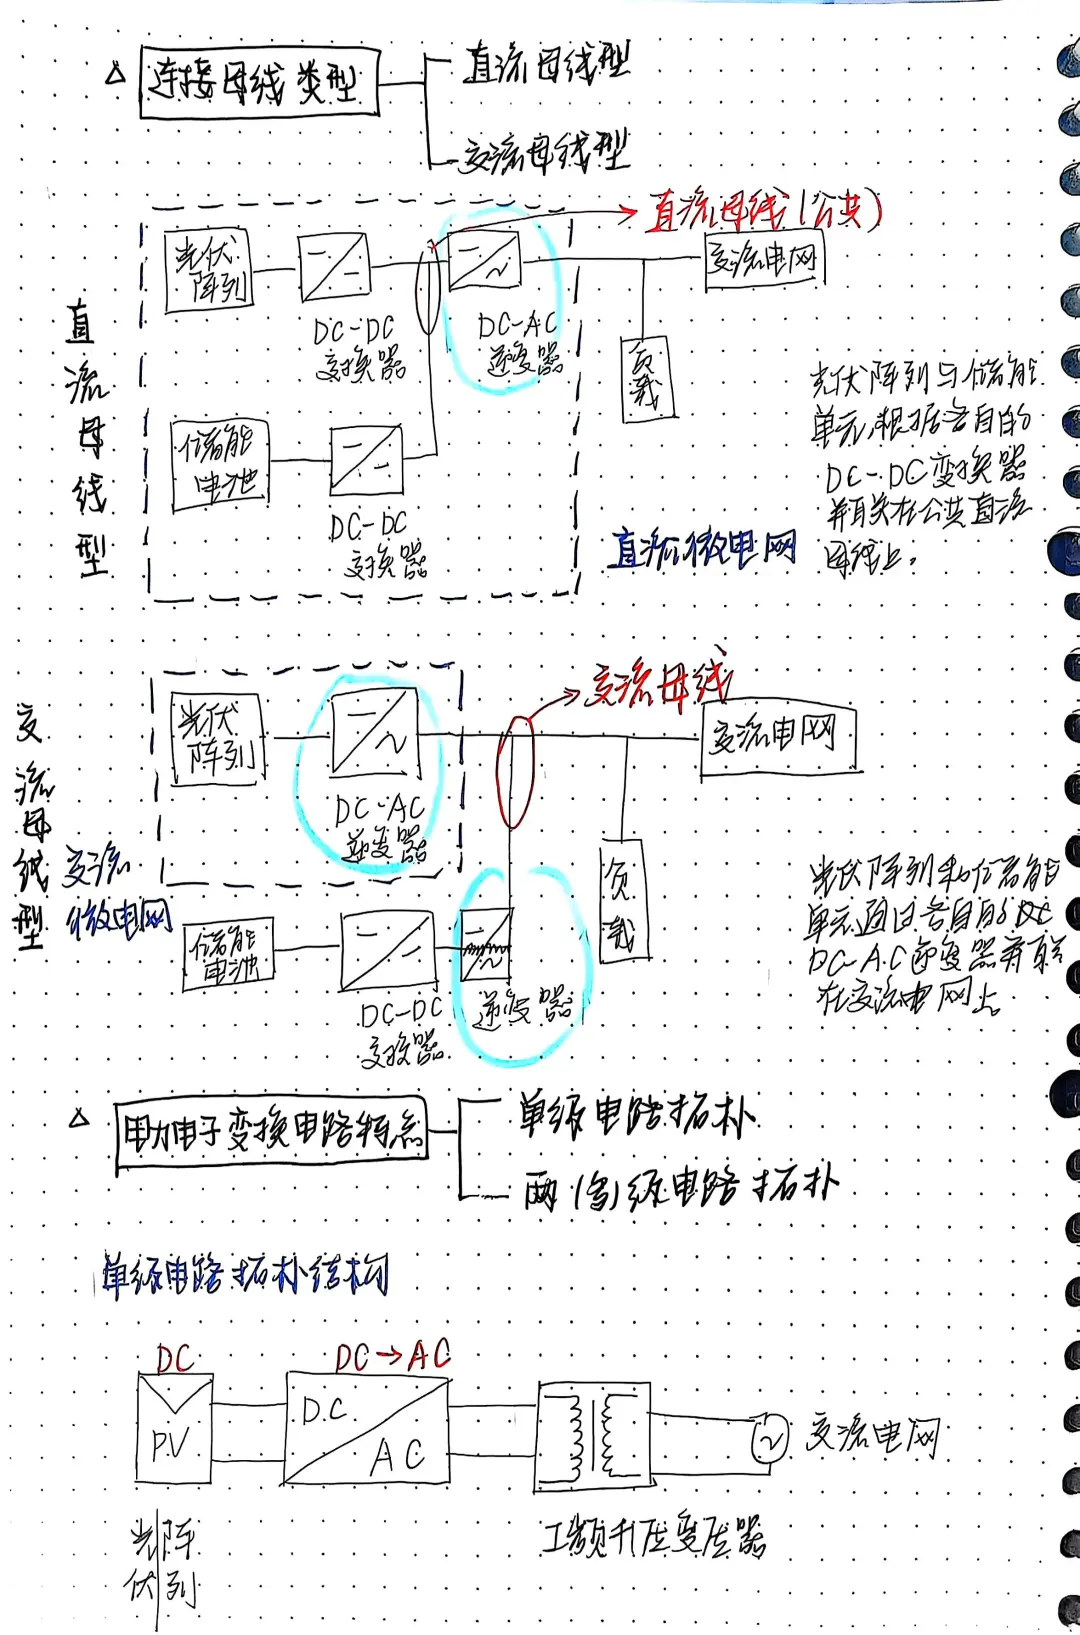 △ 连接母线类型
直流母线型
交流母线型
直流母线型
直流母线(公共)
光伏
阵列
DC-DC
变换器
DC-AC
逆变器
交流电网
负载
储能
电池
DC-DC
变换器
直流微电网
光伏阵列与储能
单元,根据各自的
DC-DC变换器
并联在公共直流
母线上。
交流母线型
交流
微电网
交流母线
光伏
阵列
DC-AC
逆变器
交流电网
负载
储能
电池
DC-DC
变换器
逆变器
光伏阵列和储能
单元通过各自的DC
DC-AC逆变器并联
在交流电网上
△ 电力电子变换电路特点
单级电路拓扑
两(多)级电路拓扑
单级电路拓扑结构
DC
DC→AC
PV
DC
AC
交流电网
光伏
阵列
工频升压变压器